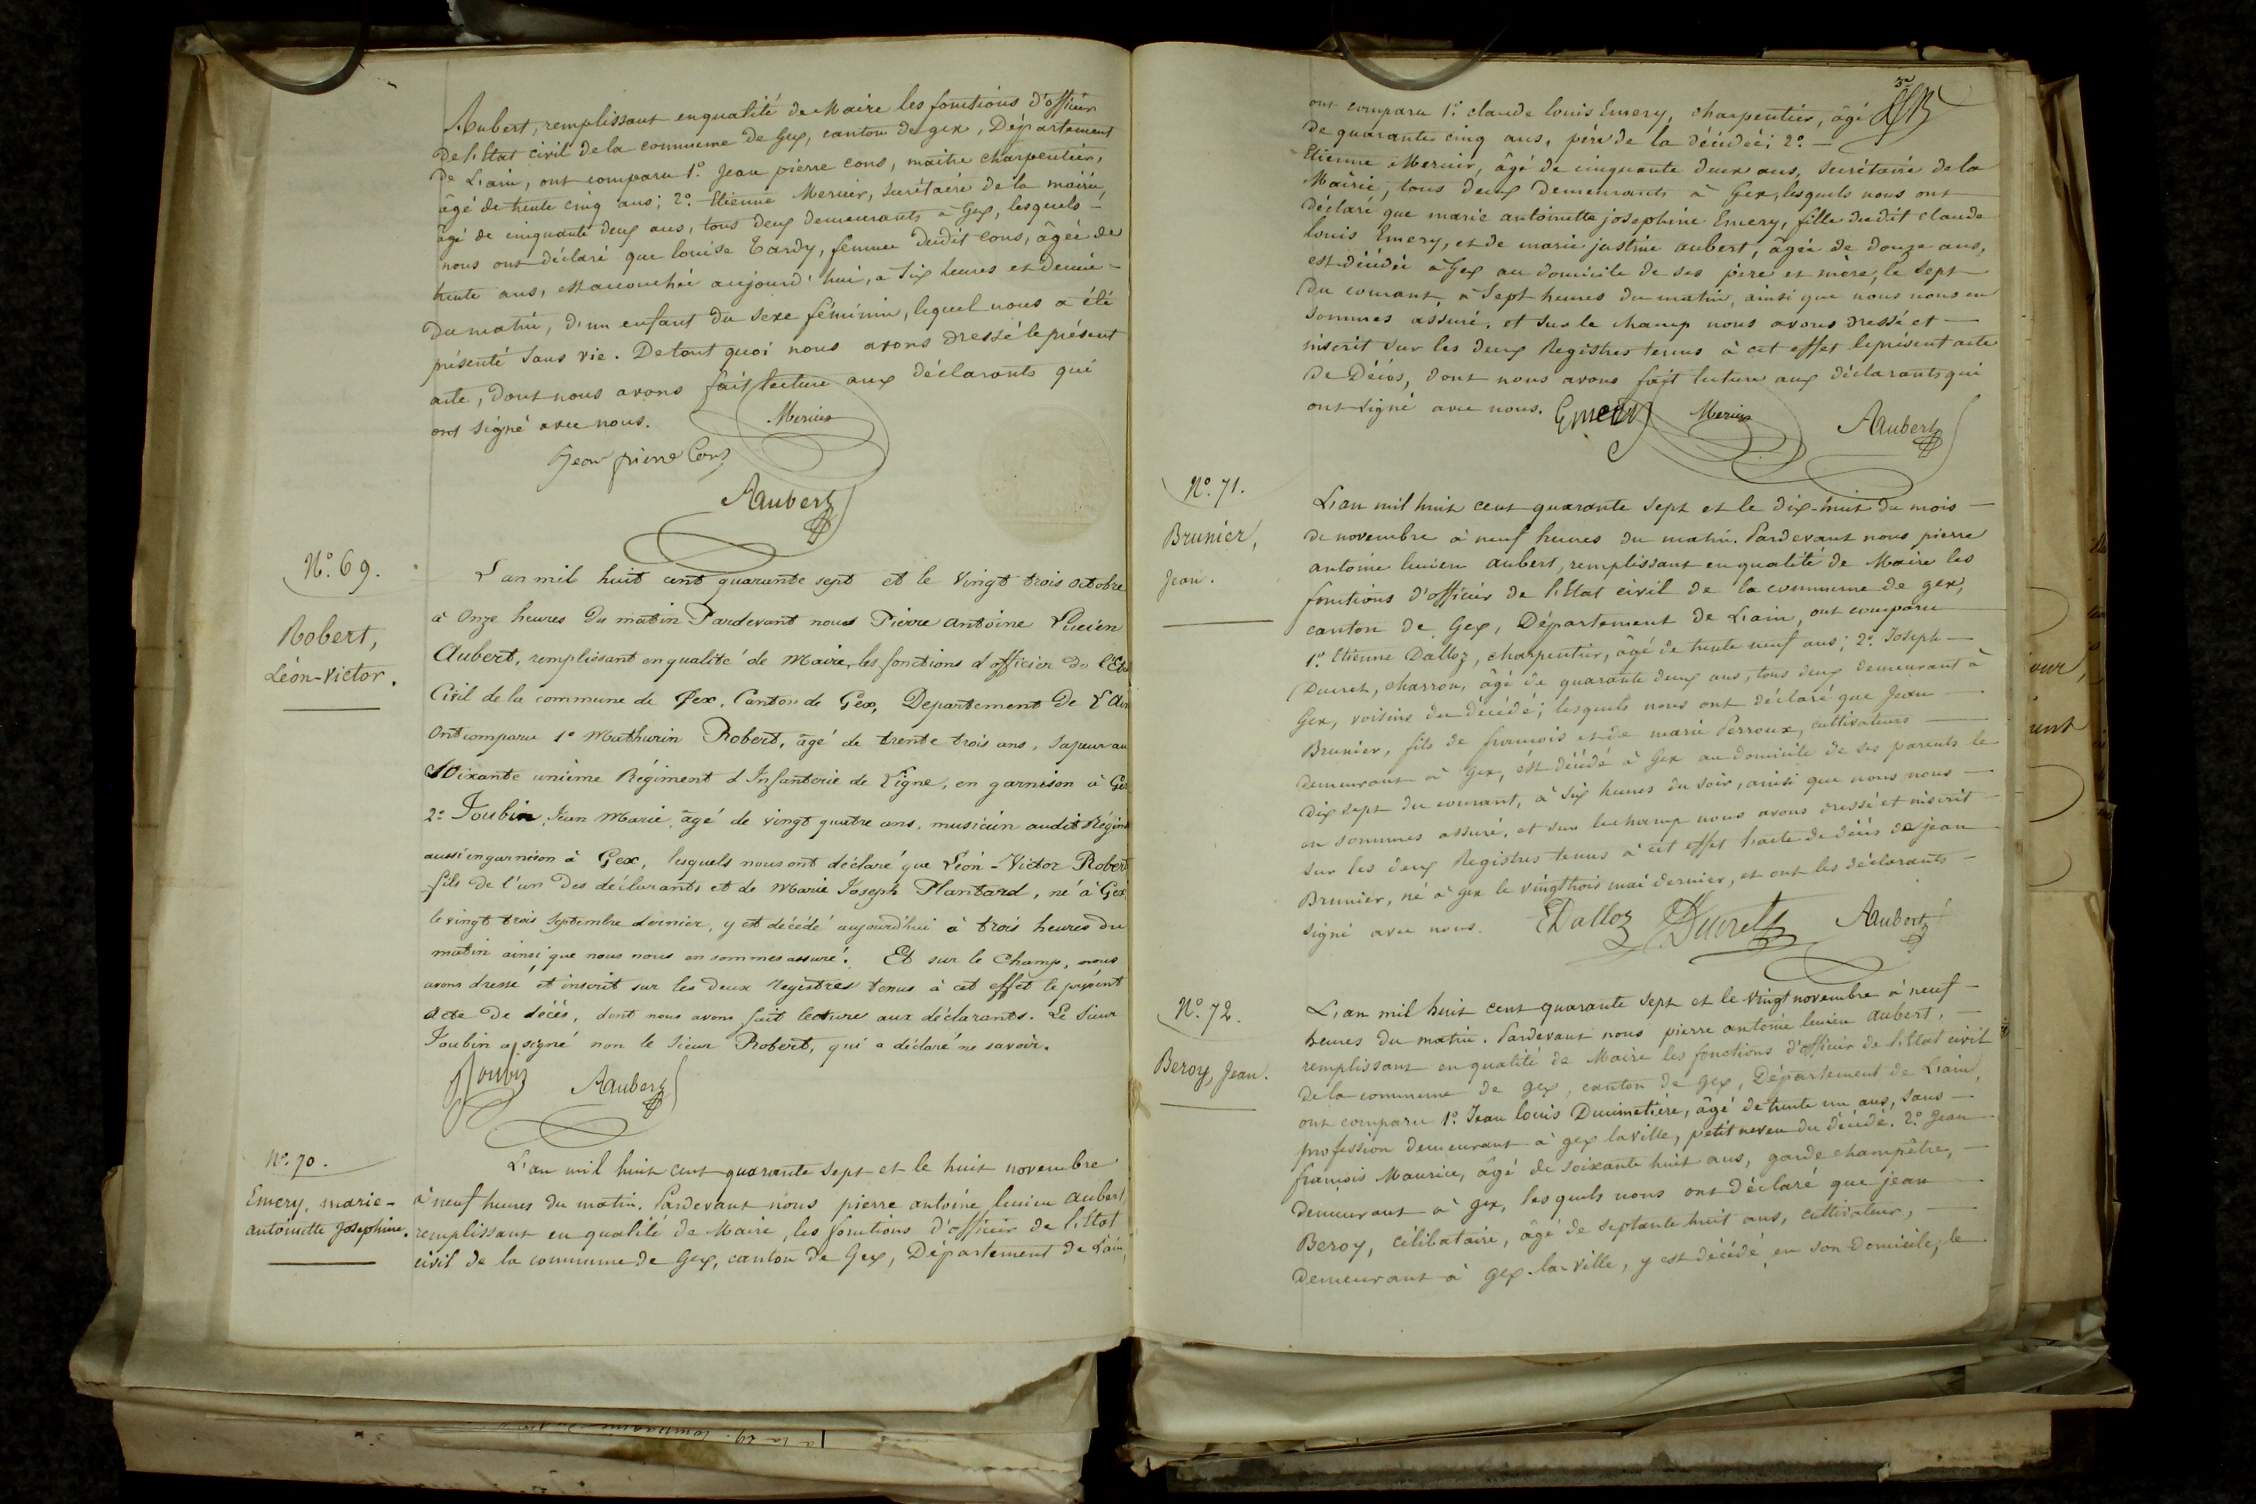 Aubert, remplissant en qualité de Maire les fonctions d'officier
de l'Etat civil de la commune de Gex, canton de gex, Département
de L'ain, ont comparu 1° Jean pierre cons, maitre charpentier,
âgé de trente cinq ans; 2° Etienne Mercier, secrétaire de la mairie,
âgé de cinquante deux ans, tous deux demeurants à Gex, lesquels
nous ont déclaré que louise Tardy, femme dudit cons, âgée de
trente ans, est accouchée aujourd'hui, à six heures et demie
du matin, d'un enfant du sexe féminin, lequel nous a été
présenté sans vie. De tout quoi nous avons dressé le présent
acte, dont nous avons fait lecture aux déclarants qui
ont signé avec nous.
Mercier
Jean pierre Cons
AAubert
N°. 69.
Robert,
Léon-Victor.
L'an mil huit cent quarante sept et le vingt trois octobre
à onze heures du matin Pardevant nous Pierre antoine Lucien
Aubert, remplissant en qualité de Maire, les fonctions d'officier de l'Etat
Civil de la commune de Gex, Canton de Gex, Département de L'Ain
Ont comparu 1° Mathurin Robert, âgé de trente trois ans, Sapeur au
Soixante unième Régiment d'Infanterie de Ligne, en garnison à Gex
2° Joubin Jean Marie, âgé de vingt quatre ans, musicien audit Régim
aussi en garnison à Gex, lesquels nous ont déclaré que Léon-Victor Robert
fils de l'un des déclarants et de Marie Joseph Plantard, né à Gex,
le vingt trois septembre dernier, y est décédé aujourd'hui à trois heures du
matin ainsi que nous nous en sommes assuré. Et sur le champ, nous
avons dressé et inscrit sur les deux registres tenus à cet effet le présent
acte de décès, dont nous avons fait lecture aux déclarants. Le Sieur
Joubin a signé non le Sieur Robert, qui a déclaré ne savoir.
Joubin AAubert
N°. 70.
Emery, marie-
antoinette Josephine.
L'an mil huit cent quarante sept et le huit novembre
à neuf heures du matin. Pardevant nous pierre antoine lucien aubert,
remplissant en qualité de Maire, les fonctions d'officier de l'Etat
civil de la commune de Gex, canton de Gex, Département de L'ain,
ont comparu 1° claude louis Emery, charpentier, âgé
de quarante cinq ans, père de la décédée; 2°
Etienne Mercier, âgé de cinquante deux ans, secrétaire de la
Mairie, tous deux demeurants à Gex, lesquels nous ont
déclaré que marie antoinette josephine Emery, fille dudit claude
louis Emery, et de marie justine aubert, âgée de douze ans,
est décédée à Gex au domicile de ses père et mère, le sept
du courant, à sept heures du matin, ainsi que nous nous en
sommes assuré, et sur le champ nous avons dressé et
inscrit sur les deux Registres tenus à cet effet le présent acte
de Décès, dont nous avons fait lecture aux déclarants qui
ont signé avec nous. Emery Mercier AAubert
N°. 71.
Brunier,
Jean.
L'an mil huit cent quarante sept et le dix-huit du mois
de novembre à neuf heures du matin. Pardevant nous pierre
antoine lucien aubert, remplissant en qualité de Maire les
fonctions d'officier de l'Etat civil de la commune de gex,
canton de Gex, Département de L'ain, ont comparu
1° Etienne Dalloz, charpentier, âgé de trente neuf ans; 2° Joseph
Ducret, charron, âgé de quarante deux ans, tous deux demeurant à
Gex, voisins du décédé; lesquels nous ont déclaré que Jean
Brunier, fils de françois et de marie Perroux, cultivateurs
demeurant à Gex, est décédé à Gex au domicile de ses parents le
dix sept du courant, à six heures du soir, ainsi que nous nous
en sommes assuré, et sur le champ nous avons dressé et inscrit
sur les deux Registres tenus à cet effet l'acte de décès de jean
Brunier, né à Gex le vingt trois mai dernier, et ont les déclarants
signé avec nous. EDalloz Ducret AAubert
N°. 72.
Beroy, Jean.
L'an mil huit cent quarante sept et le vingt novembre à neuf
heures du matin. Pardevant nous pierre antoine lucien aubert,
remplissant en qualité de Maire les fonctions d'officier de l'Etat civil
de la commune de gex, canton de gex, Département de L'ain,
ont comparu 1° Jean louis Ducimetière, âgé de trente un ans, sans
profession demeurant à gex la ville, petit neveu du décédé. 2° Jean
françois Maurice, âgé de soixante huit ans, garde champêtre,
demeurant à gex, lesquels nous ont déclaré que jean
Beroy, célibataire, âgé de septante huit ans, cultivateur,
demeurant à gex-la-ville, y est décédé en son domicile, le